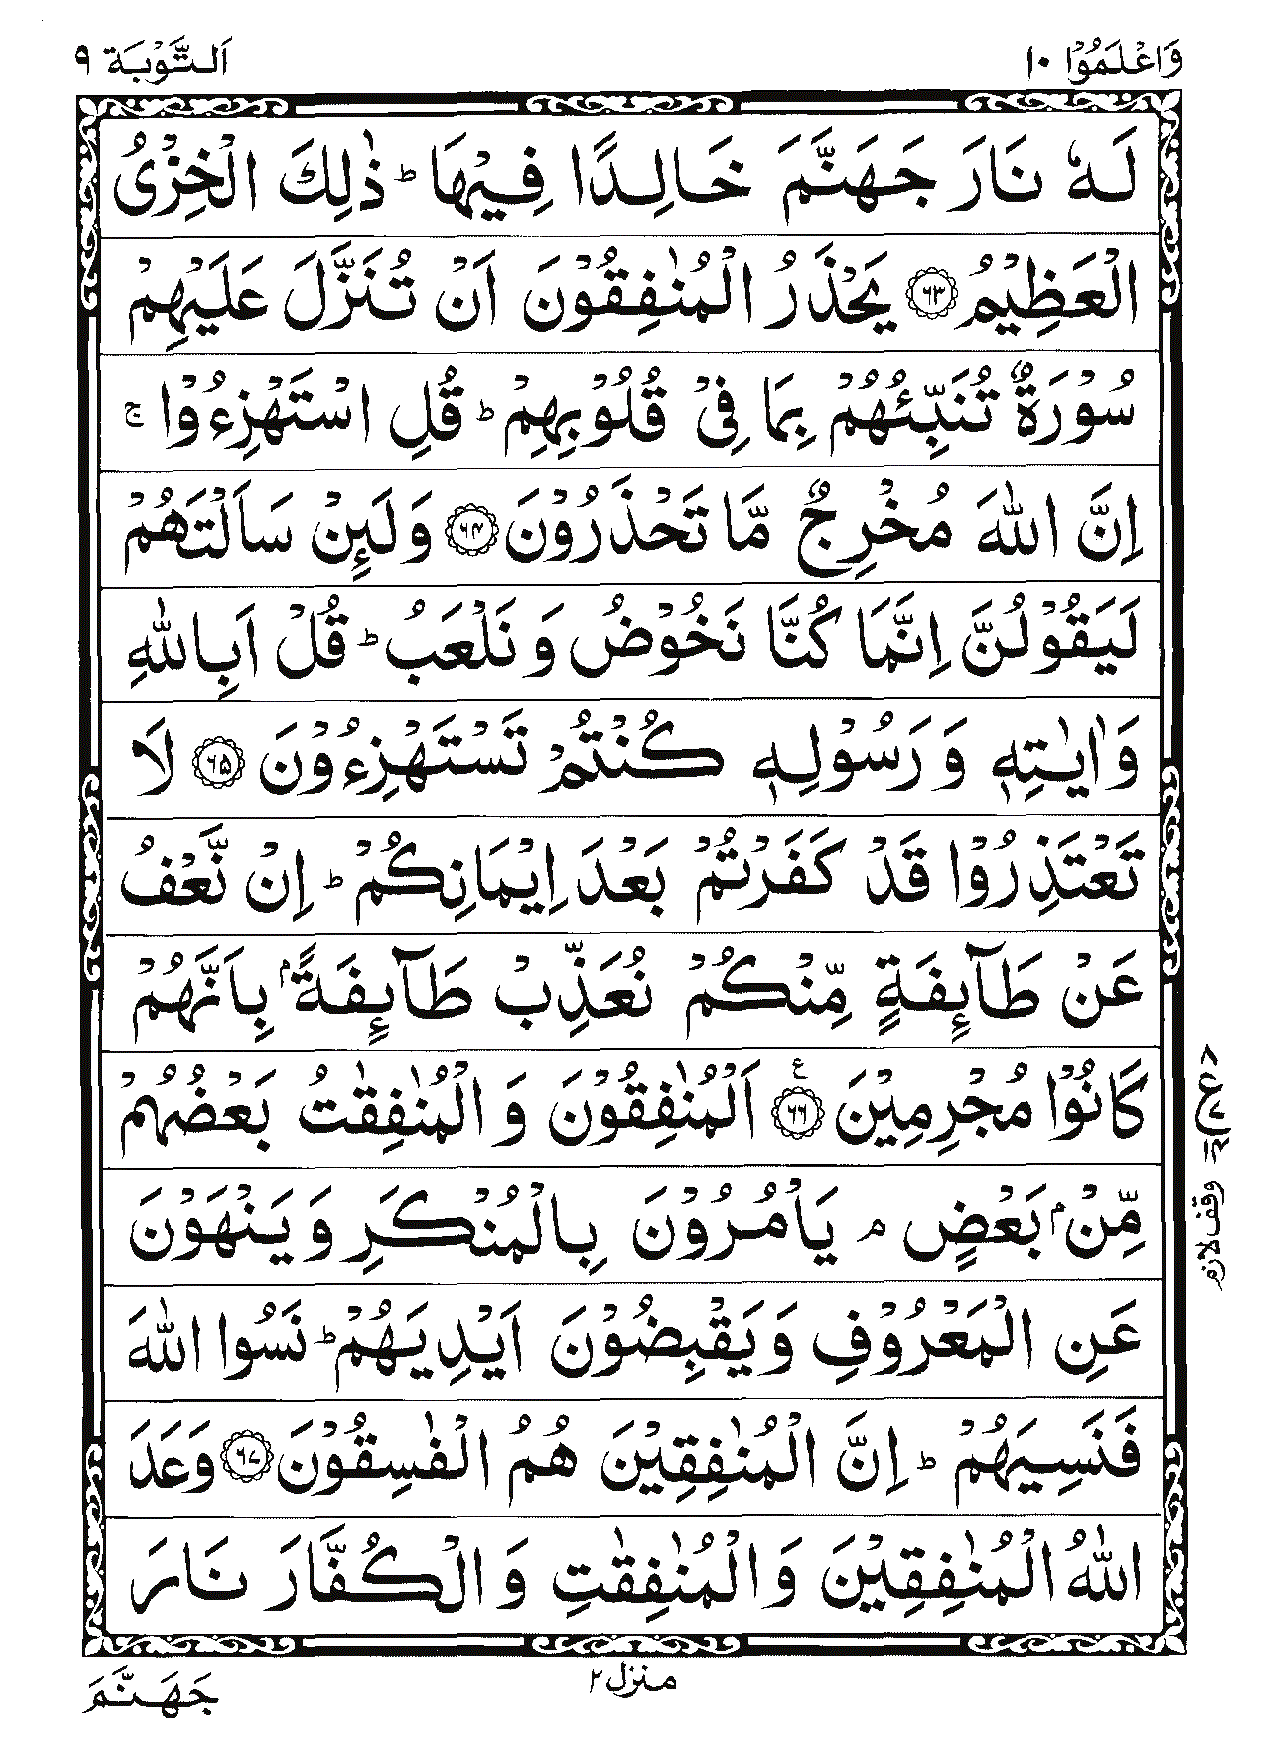 وَاعْلَمُوْۤا ١٠
اَلتَّوْبَة ٩
لَهٗ نَارَ جَهَنَّمَ خَالِدًا فِيْهَا ؕ ذٰلِكَ الْخِزْيُ
الْعَظِيْمُ ﴿٦٣﴾ يَحْذَرُ الْمُنٰفِقُوْنَ اَنْ تُنَزَّلَ عَلَيْهِمْ
سُوْرَةٌ تُنَبِّئُهُمْ بِمَا فِيْ قُلُوْبِهِمْ ؕ قُلِ اسْتَهْزِءُوْا ۚ
اِنَّ اللّٰهَ مُخْرِجٌ مَّا تَحْذَرُوْنَ ﴿٦٤﴾ وَلَىِٕنْ سَاَلْتَهُمْ
لَيَقُوْلُنَّ اِنَّمَا كُنَّا نَخُوْضُ وَ نَلْعَبُ ؕ قُلْ اَبِاللّٰهِ
وَاٰيٰتِهٖ وَ رَسُوْلِهٖ كُنْتُمْ تَسْتَهْزِءُوْنَ ﴿٦٥﴾ لَا
تَعْتَذِرُوْا قَدْ كَفَرْتُمْ بَعْدَ اِيْمَانِكُمْ ؕ اِنْ نَّعْفُ
عَنْ طَآىِٕفَةٍ مِّنْكُمْ نُعَذِّبْ طَآىِٕفَةًۢ بِاَنَّهُمْ
كَانُوْا مُجْرِمِيْنَ ﴿٦٦﴾ ع اَلْمُنٰفِقُوْنَ وَ الْمُنٰفِقٰتُ بَعْضُهُمْ
مِّنْۢ بَعْضٍ ۘ يَاْمُرُوْنَ بِالْمُنْكَرِ وَ يَنْهَوْنَ
عَنِ الْمَعْرُوْفِ وَ يَقْبِضُوْنَ اَيْدِيَهُمْ ؕ نَسُوا اللّٰهَ
فَنَسِيَهُمْ ؕ اِنَّ الْمُنٰفِقِيْنَ هُمُ الْفٰسِقُوْنَ ﴿٦٧﴾ وَعَدَ
اللّٰهُ الْمُنٰفِقِيْنَ وَ الْمُنٰفِقٰتِ وَ الْكُفَّارَ نَارَ
وقف لازم
منزل ٢
جَهَنَّمَ